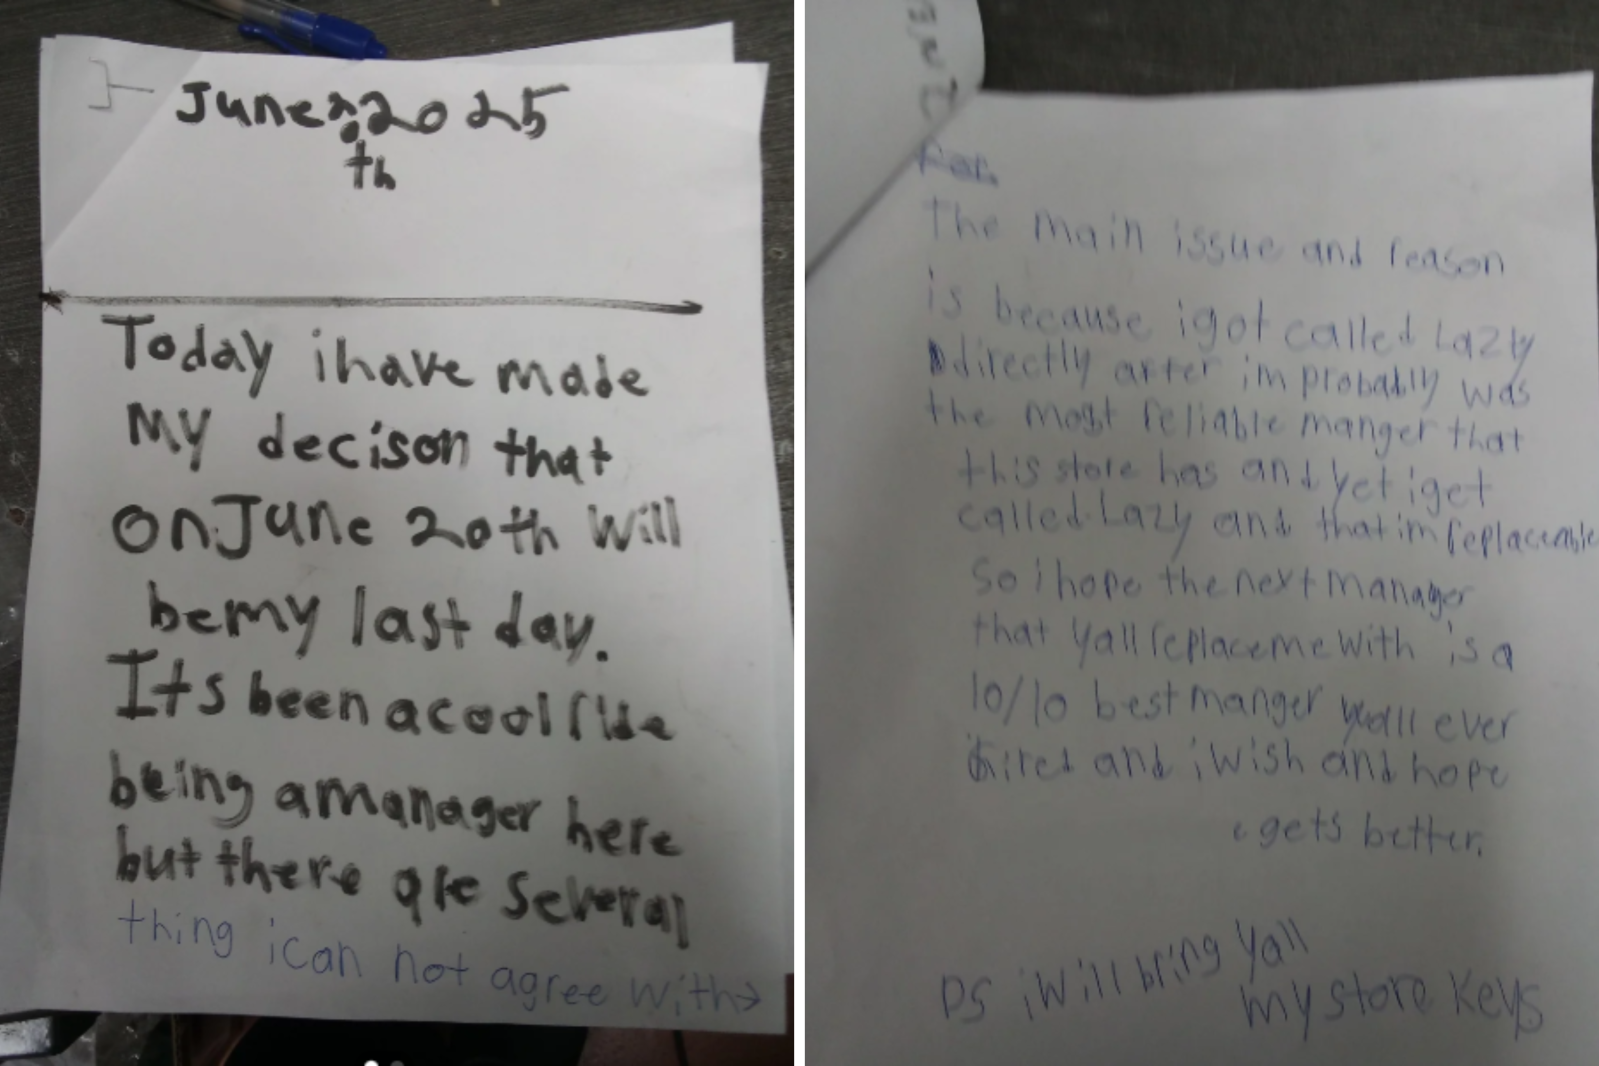 June 20 2025
th
Today i have made
My decison that
on June 20th will
be my last day.
Its been a cool ride
being a manager here
but there are several
thing i can not agree with→
The main issue and reason
is because i got called Lazly
directly after im probably was
the most reliable manger that
this store has and yet i get
called Lazy and that im replaceable
So i hope the next manager
that yall replace me with is a
10/10 best manger yall ever
hired and i wish and hope
gets better.
PS i Will bring yall
my store keys